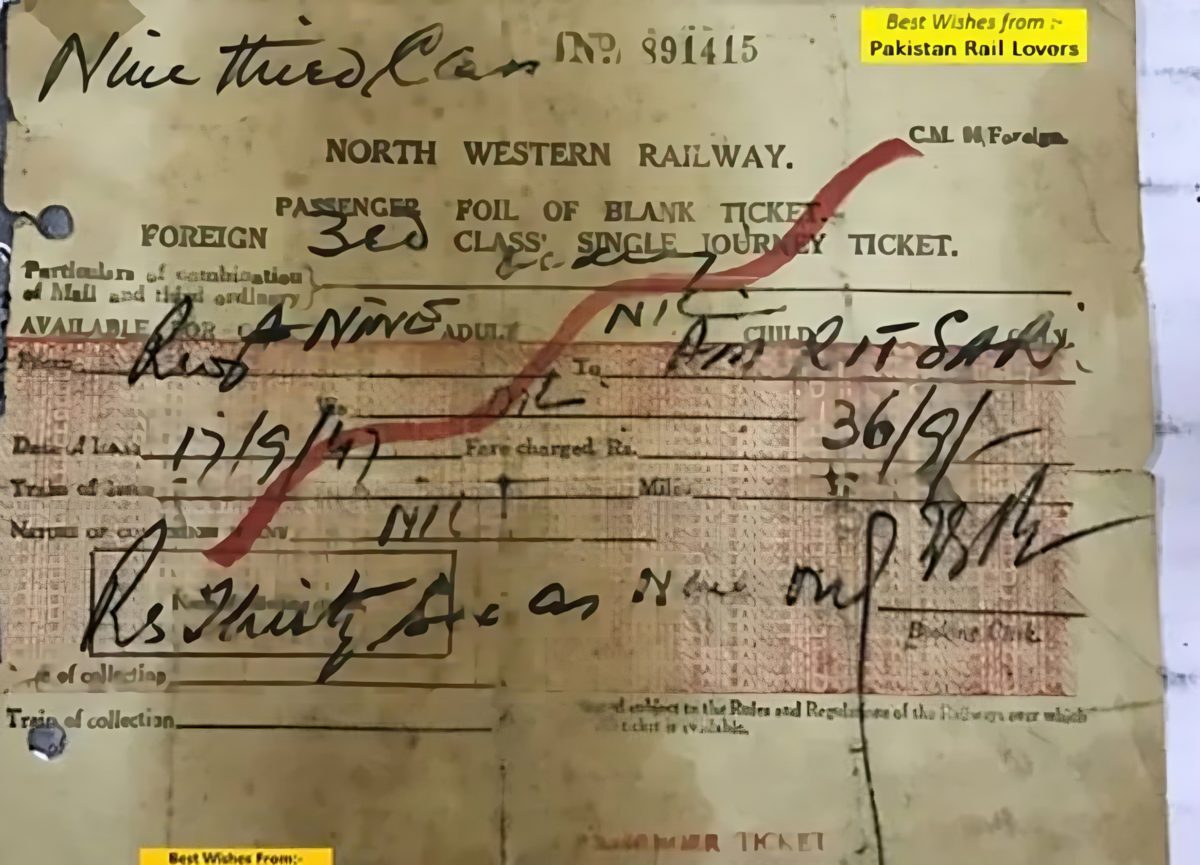 Best Wishes from :-
Pakistan Rail Lovors
Nine third Class No. 891415
C.M. M, Foreign
NORTH WESTERN RAILWAY.
PASSENGER FOIL OF BLANK TICKET.
FOREIGN 3rd CLASS' SINGLE JOURNEY TICKET.
Particulars of combination
of Mail and third ordinary
AVAILABLE FOR NINE ADULT NIL CHILD
To AMRITSAR
NIL
Date of Issue 17/9/47 Fare charged Rs. 36/9/-
Train of Issue Miles
NIL
Rs Thirty Six as Nine only
Booking Clerk
of collection
Train of collection
subject to the Rules and Regulations of the Railways over which
ticket is available.
PASSENGER TICKET
Best Wishes From:-